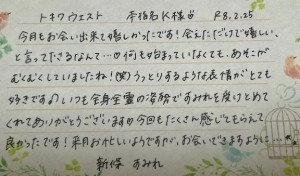 トキワウエスト 本指名K様♡ R8.2.25
今月もお会い出来て嬉しかったです！会えただけで嬉しい、
と言ってくださるなんて…♡何も始まっていなくても、あそこが
むくむくしていましたね！(笑)うっとりするような表情がとても
好きです♪いつも全身全霊の姿勢ですみれを受けとめて
くれてありがとうございます♡今回もたくさん感じてもらえて
良かったです！来月お忙しいようですが、お会いできますように…
新保 すみれ